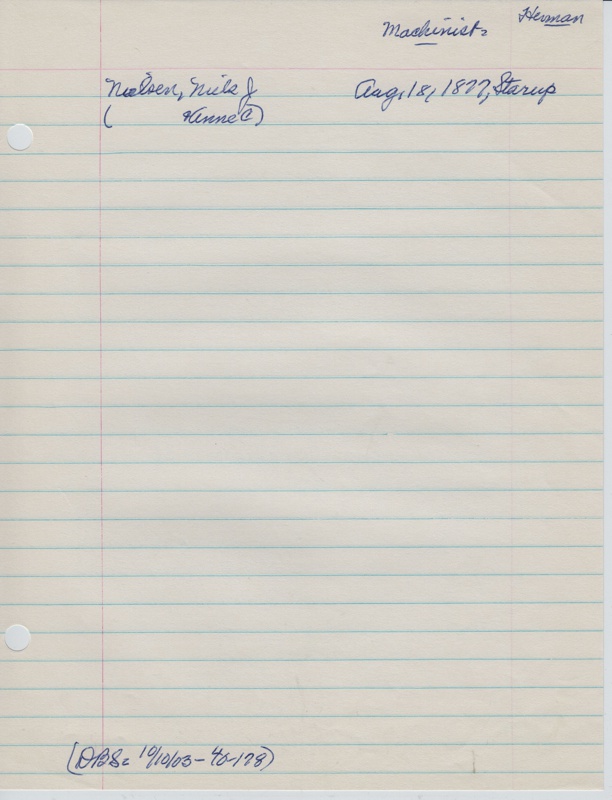 Herman
Machinist=
Nielsen, Niels J Aug, 18, 1877, Starup
( Hinne C)
(DBS= 10/10/03-40-178)